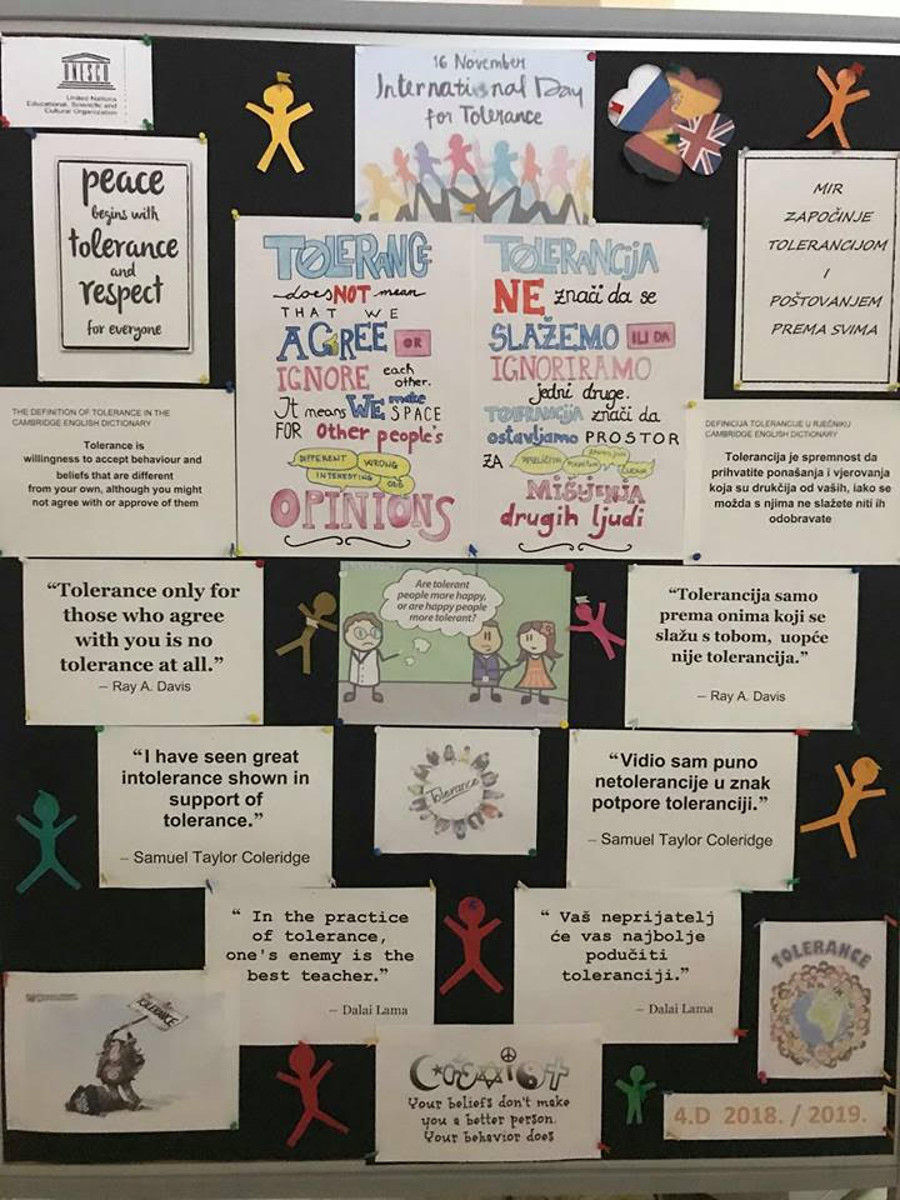 UNESCO
United Nations
Educational, Scientific and
Cultural Organization
16 November
International Day
for Tolerance
peace
begins with
tolerance
and
respect
for everyone
MIR
ZAPOČINJE
TOLERANCIJOM
I
POŠTOVANJEM
PREMA SVIMA
TOLERANCE
does NOT mean
THAT WE
AGREE OR
IGNORE each
other.
It means WE make
SPACE
FOR other people's
DIFFERENT WRONG
INTERESTING ODD
OPINIONS
TOLERANCIJA
NE znači da se
SLAŽEMO ILI DA
IGNORIRAMO
jedni druge.
TOLERANCIJA znači da
ostavljamo PROSTOR
ZA
MIŠLJENJA
drugih ljudi
THE DEFINITION OF TOLERANCE IN THE
CAMBRIDGE ENGLISH DICTIONARY
Tolerance is
willingness to accept behaviour and
beliefs that are different
from your own, although you might
not agree with or approve of them
DEFINICIJA TOLERANCIJE U RJEČNIKU
CAMBRIDGE ENGLISH DICTIONARY
Tolerancija je spremnost da
prihvatite ponašanja i vjerovanja
koja su drukčija od vaših, iako se
možda s njima ne slažete niti ih
odobravate
“Tolerance only for
those who agree
with you is no
tolerance at all.”
– Ray A. Davis
Are tolerant
people more happy,
or are happy people
more tolerant?
“Tolerancija samo
prema onima koji se
slažu s tobom, uopće
nije tolerancija.”
– Ray A. Davis
“I have seen great
intolerance shown in
support of
tolerance.”
– Samuel Taylor Coleridge
Tolerance
“Vidio sam puno
netolerancije u znak
potpore toleranciji.”
– Samuel Taylor Coleridge
“ In the practice
of tolerance,
one's enemy is the
best teacher.”
– Dalai Lama
“ Vaš neprijatelj
će vas najbolje
podučiti
toleranciji.”
– Dalai Lama
TOLERANCE
TOLERANCE
Your beliefs don't make
you a better person.
Your behavior does
4.D 2018. / 2019.